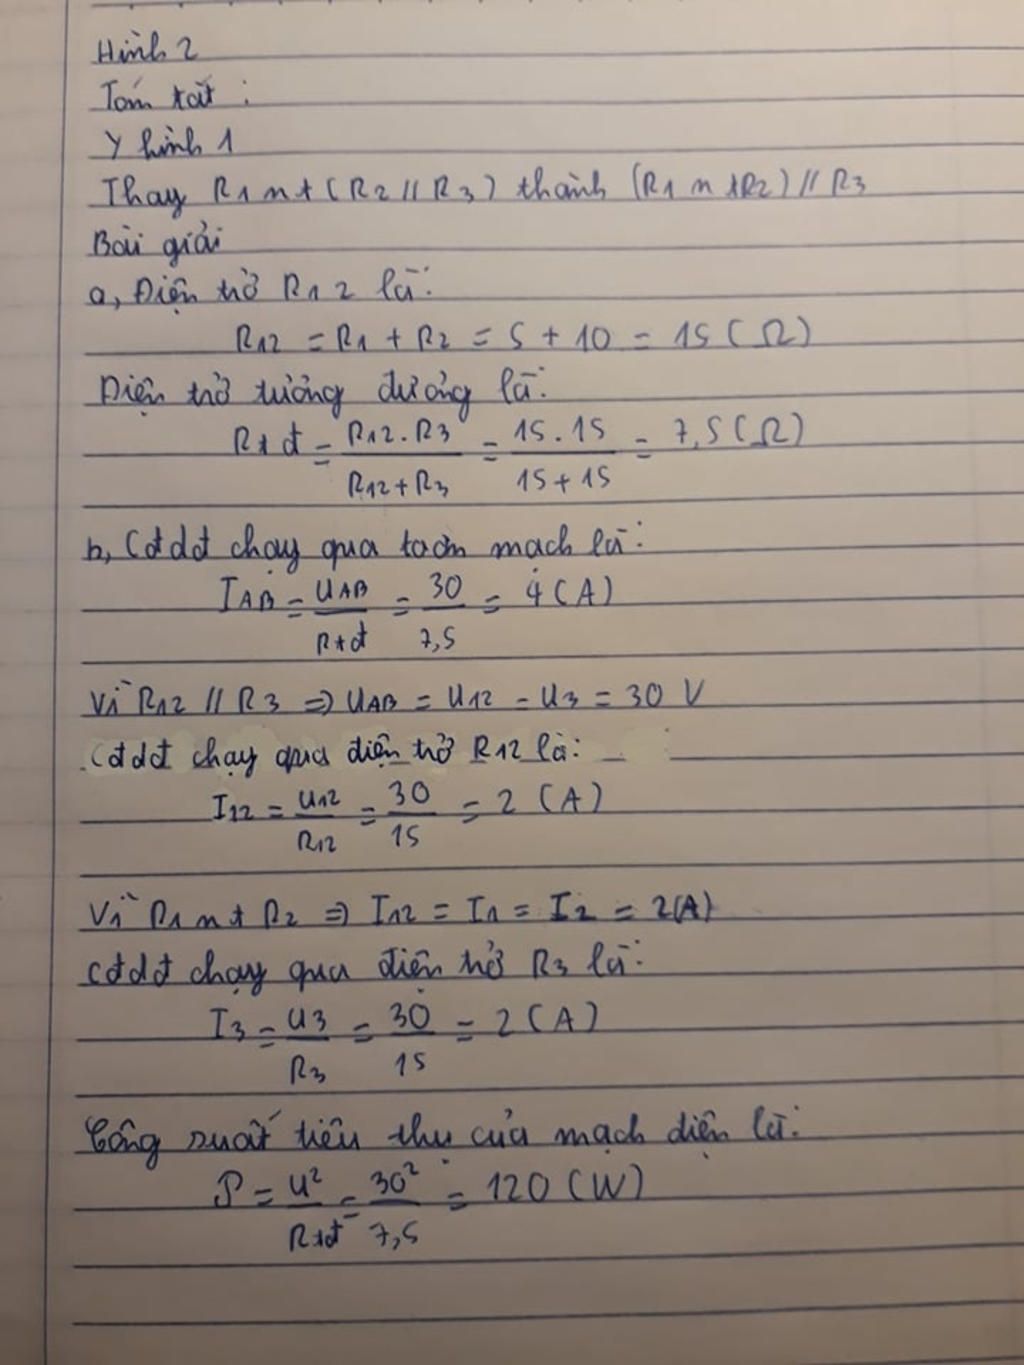 Hình 2
Tóm tắt :
Y hình 1
Thay R1 nt (R2 // R3) thành (R1 nt R2) // R3
Bài giải
a, Điện trở R12 là:
R12 = R1 + R2 = 5 + 10 = 15 (Ω)
Điện trở tương đương là:
Rtđ = R12.R3 / R12+R3 = 15.15 / 15+15 = 7,5 (Ω)
b, Cđdđ chạy qua toàn mạch là:
IAB = UAB / Rtđ = 30 / 7,5 = 4 (A)
Vì R12 // R3 => UAB = U12 = U3 = 30 V
Cđdđ chạy qua điện trở R12 là:
I12 = U12 / R12 = 30 / 15 = 2 (A)
Vì R1 nt R2 => I12 = I1 = I2 = 2(A)
Cđdđ chạy qua điện trở R3 là:
I3 = U3 / R3 = 30 / 15 = 2 (A)
Công suất tiêu thụ của mạch điện là:
P = U² / Rtđ = 30² / 7,5 = 120 (W)